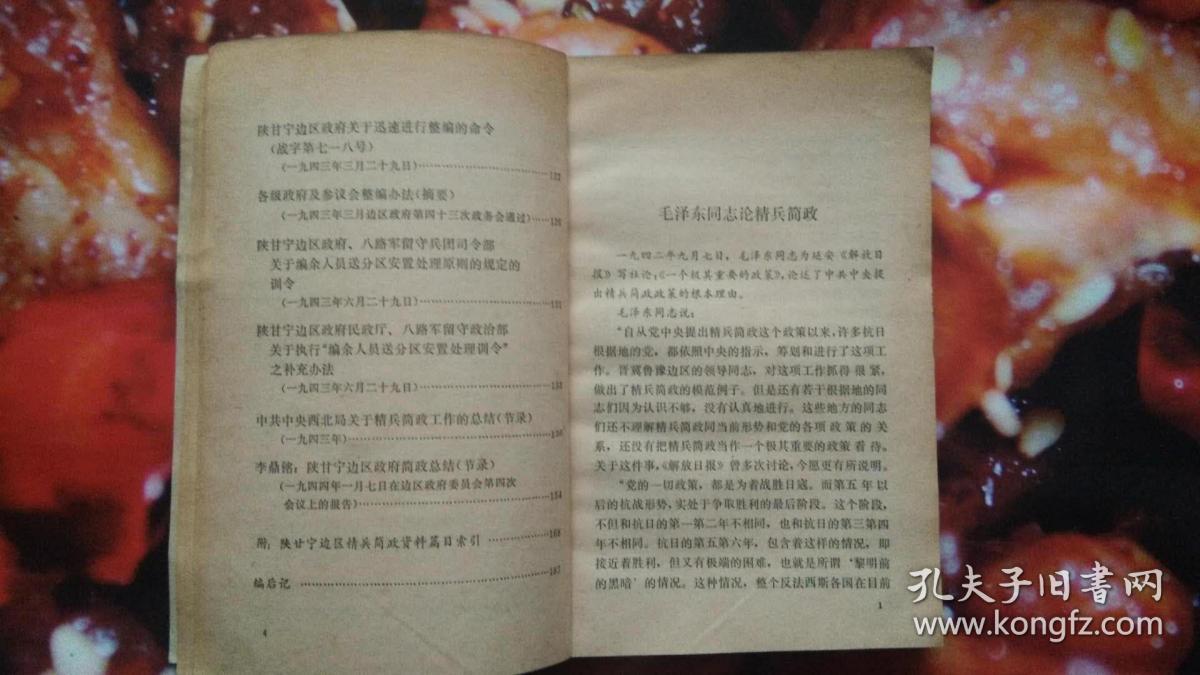 陕甘宁边区政府关于迅速进行整编的命令
(战字第七一八号)
(一九四三年三月二十九日)
各级政府及参议会整编办法(摘要)
(一九四三年三月边区政府第四十三次政务会通过)……126
陕甘宁边区政府、八路军留守兵团司令部
关于编余人员送分区安置处理原则的规定的
训令
(一九四三年六月二十九日)……131
陕甘宁边区政府民政厅、八路军留守政治部
关于执行“编余人员送分区安置处理训令”
之补充办法
(一九四三年六月二十九日)
中共中央西北局关于精兵简政工作的总结(节录)
(一九四三年)……136
李鼎铭:陕甘宁边区政府简政总结(节录)
(一九四四年一月七日在边区政府委员会第四次
会议上的报告)……154
附:陕甘宁边区精兵简政资料篇目索引……168
编后记……187
4
毛泽东同志论精兵简政
一九四二年九月七日,毛泽东同志为延安《解放日
报》写社论:《一个极其重要的政策》,论述了中共中央提
出精兵简政政策的根本理由。
毛泽东同志说:
“自从党中央提出精兵简政这个政策以来,许多抗日
根据地的党,都依照中央的指示,筹划和进行了这项工
作。晋冀鲁豫边区的领导同志,对这项工作抓得很紧,
做出了精兵简政的模范例子。但是还有若干根据地的同
志们因为认识不够,没有认真地进行。这些地方的同志
们还不理解精兵简政同当前形势和党的各项政策的关
系,还没有把精兵简政当作一个极其重要的政策看待。
关于这件事,《解放日报》曾多次讨论,今愿更有所说明。
“党的一切政策,都是为着战胜日寇。而第五年以
后的抗战形势,实处于争取胜利的最后阶段。这个阶段,
不但和抗日的第一第二年不相同,也和抗日的第三第四
年不相同。抗日的第五第六年,包含着这样的情况,即
接近着胜利,但又有极端的困难,也就是所谓‘黎明前
的黑暗’的情况。这种情况,整个反法西斯各国在目前
1
孔夫子旧书网
www.kongfz.com